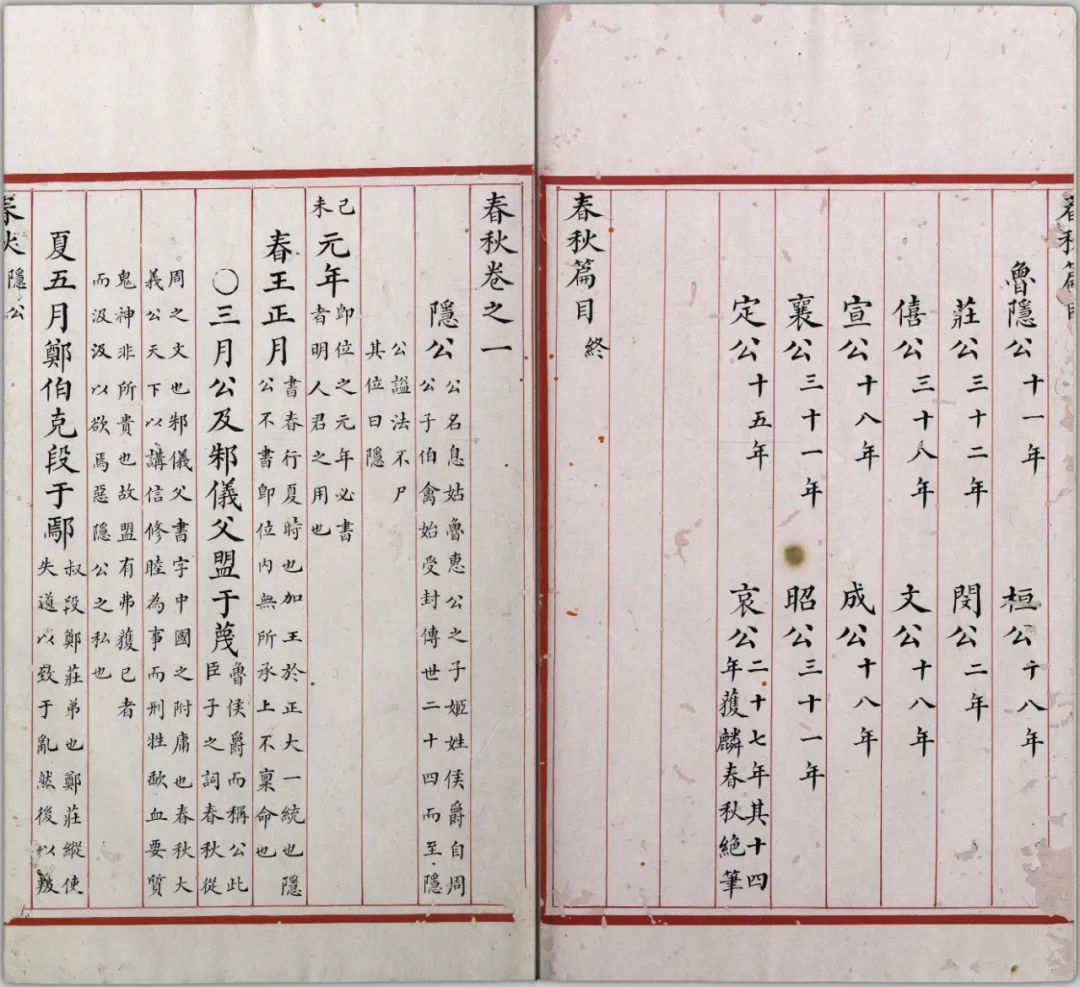 春秋篇目
魯隱公十一年 桓公十八年
莊公三十二年 閔公二年
僖公三十八年 文公十八年
宣公十八年 成公十八年
襄公三十一年 昭公三十一年
定公十五年 哀公二十七年其十四
年獲麟春秋絕筆
春秋篇目終
春秋卷之一
隱公 公名息姑魯惠公之子姬姓侯爵自周
公子伯禽始受封傳世二十四而至隱
公諡法不尸
其位曰隱
己未 元年 即位之元年必書
者明人君之用也
春王正月 書春行夏時也加王於正大一統也隱
公不書即位內無所承上不稟命也
〇三月公及邾儀父盟于蔑 魯侯爵而稱公此
臣子之詞春秋從
周之文也邾儀父書字中國之附庸也春秋大
義公天下以講信修睦為事而刑牲歃血要質
鬼神非所貴也故盟有弗獲已者
而汲汲以欲焉惡隱公之私也
夏五月鄭伯克段于鄢 叔段鄭莊弟也鄭莊縱使
失道以致于亂然後以叛
春秋 隱公